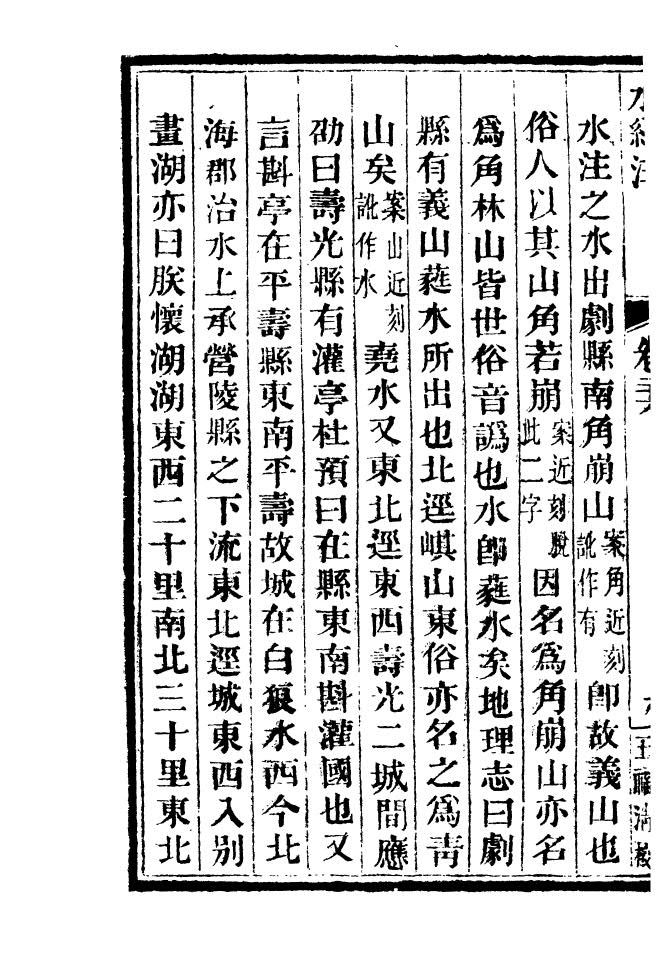 水經注 卷二十六 王福清校
水注之水出劇縣南角崩山案角近刻訛作有卽故義山也
俗人以其山角若崩案近刻脫此二字因名爲角崩山亦名
爲角林山皆世俗音譌也水卽蕤水矣地理志曰劇
縣有義山蕤水所出也北逕㟚山東俗亦名之爲靑
山矣案山近刻訛作水堯水又東北逕東西壽光二城間應
劭曰壽光縣有灌亭杜預曰在縣東南斟灌國也又
言斟亭在平壽縣東南平壽故城在白狼水西今北
海郡治水上承營陵縣之下流東北逕城東西入別
畫湖亦曰朕懷湖湖東西二十里南北三十里東北